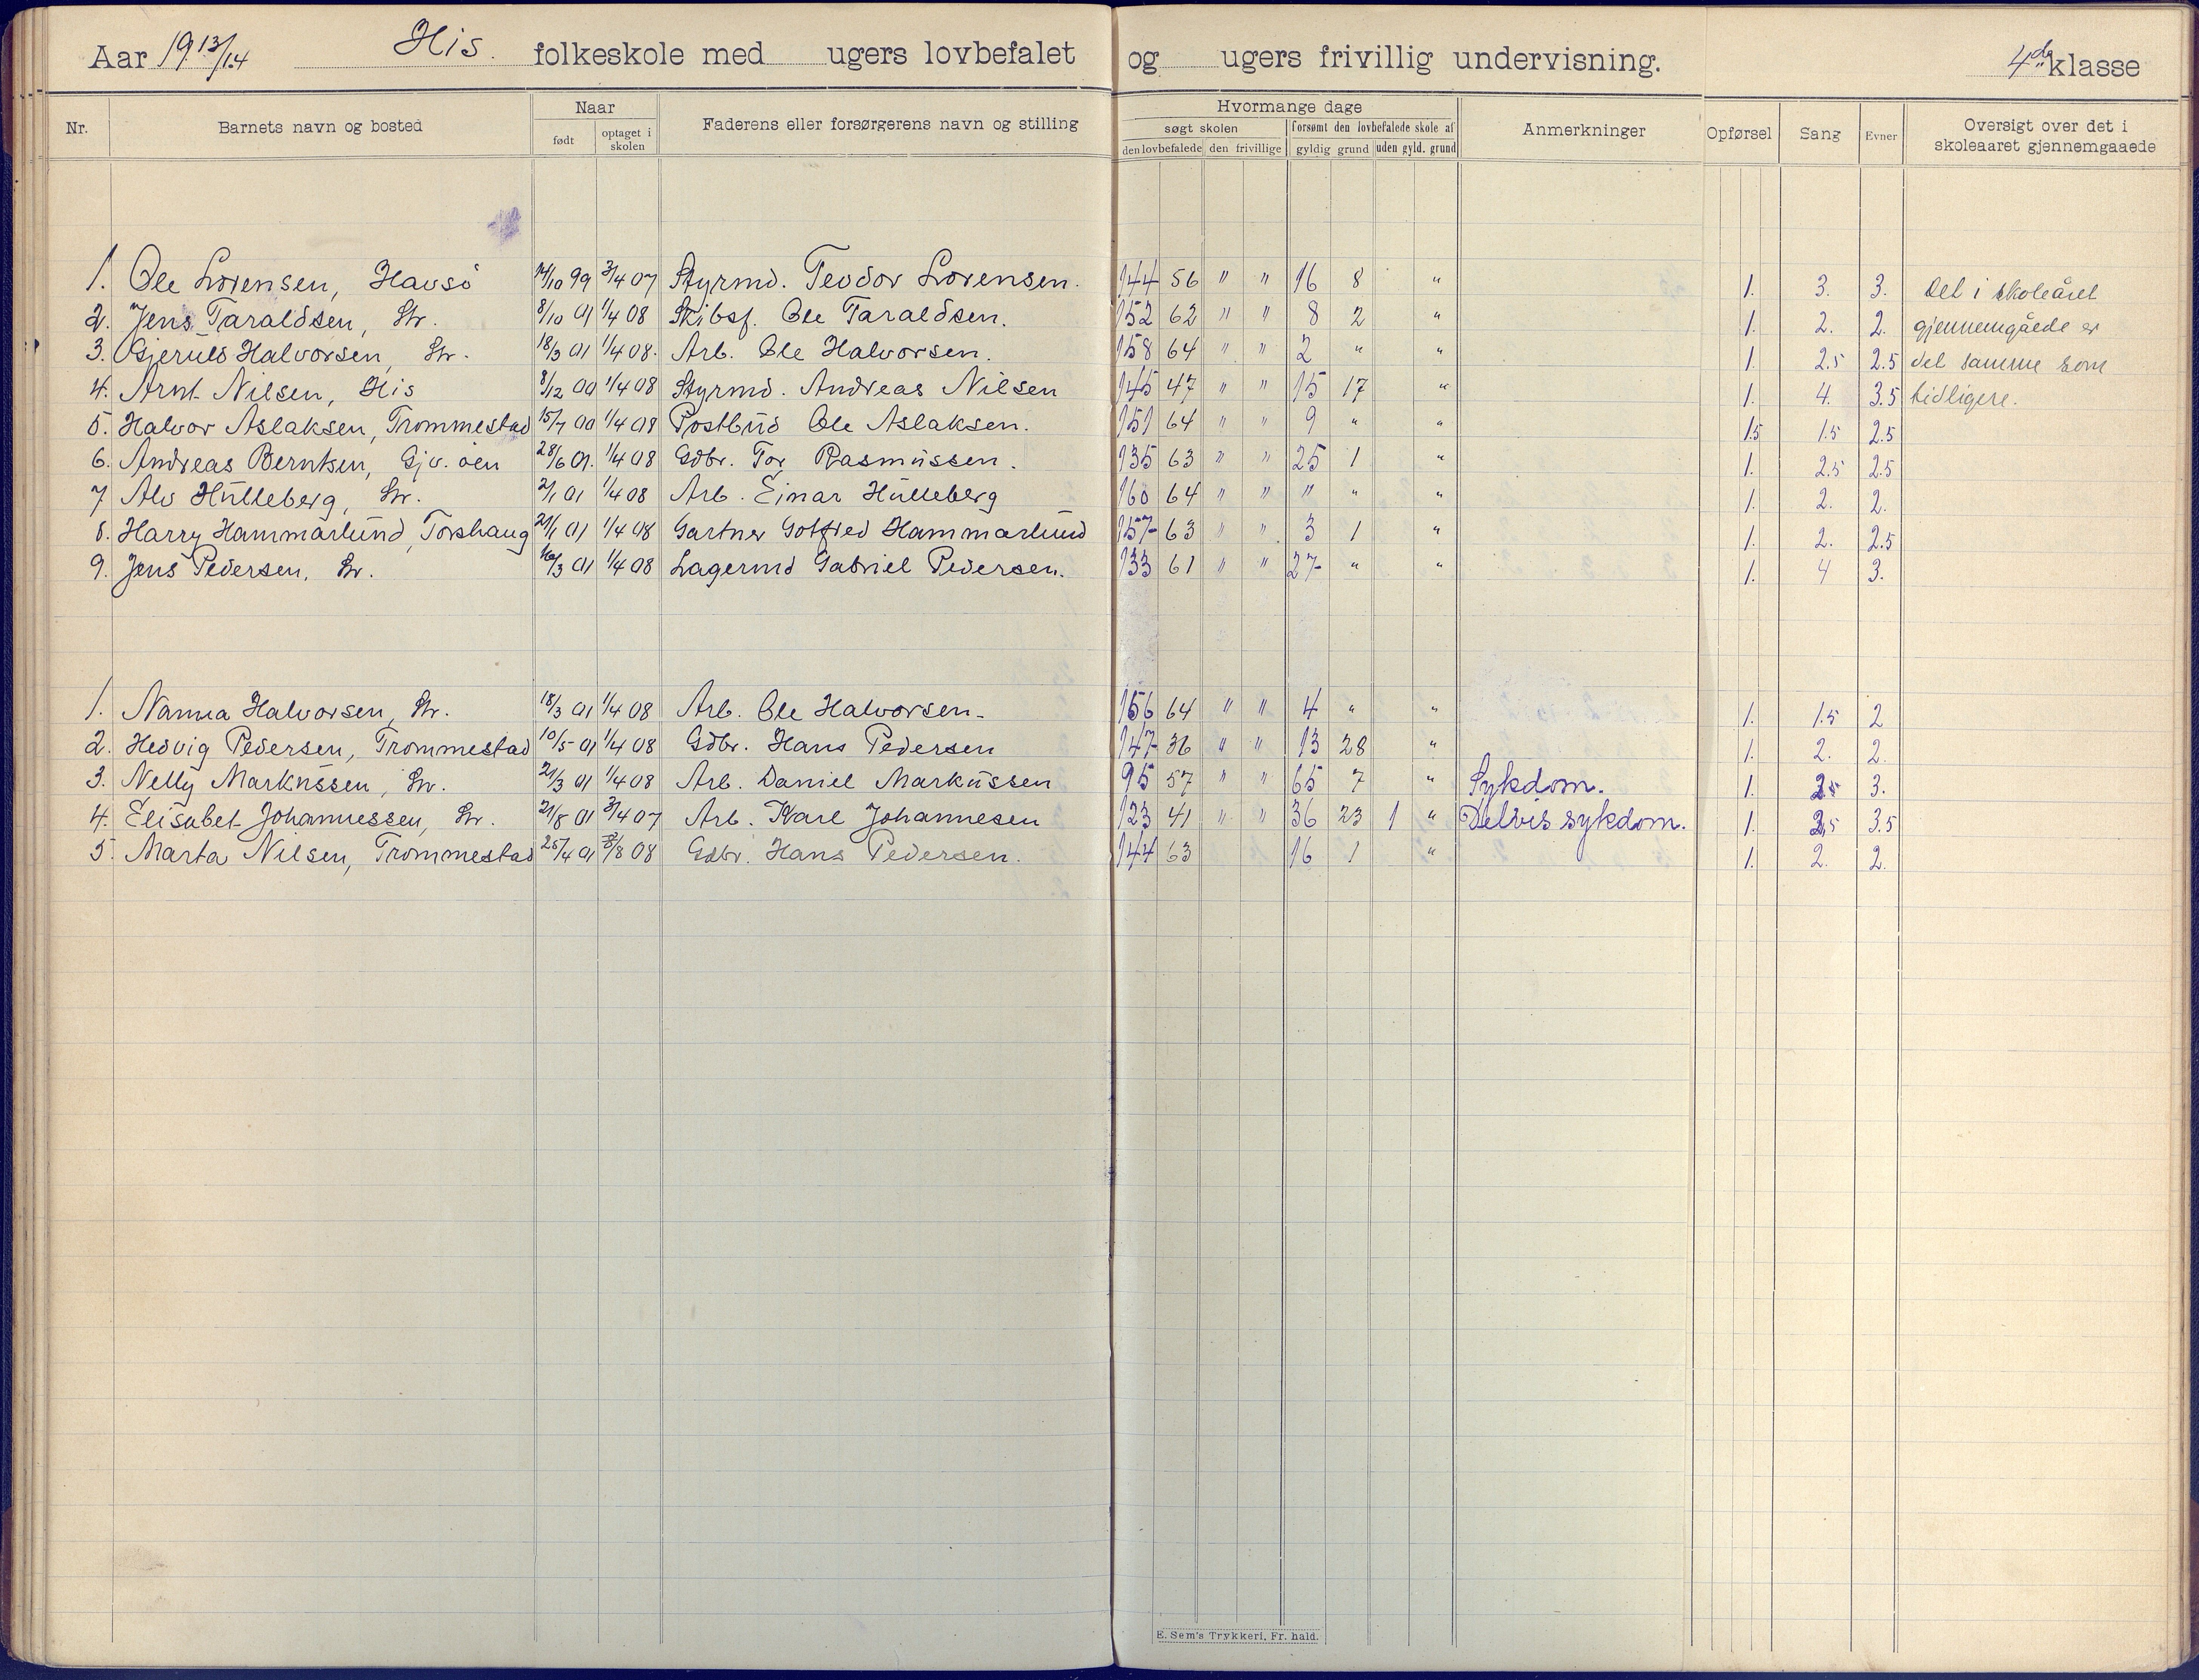 Aar 1913/14 His. folkeskole med ugers lovbefalet og ugers frivillig undervisning. 4de klasse
Nr. Barnets navn og bosted Naar født optaget i skolen Faderens eller forsørgerens navn og stilling Hvormange dage søgt skolen den lovbefalede den frivillige forsømt den lovbefalede skole af gyldig grund uden gyld. grund Anmerkninger Opførsel Sang Evner Oversigt over det i skoleaaret gjennemgaaede
1. Ole Lorensen, Havsö 14/10 99 3/4 07 Styrmd. Teodor Lorensen. 144 56 " " 16 8 " 1. 3. 3. Det i skoleåret
2. Jens Taraldsen, Str. 8/10 01 1/4 08 Skibsf. Ole Taraldsen. 152 62 " " 8 2 " 1. 2. 2. gjennemgåede er
3. Gjerulf Halvorsen, Str. 18/3 01 1/4 08. Arb. Ole Halvorsen. 158 64 " " 2 " " 1. 2.5 2.5 det samme som
4. Arnt Nilsen, His 8/12 00 1/4 08 Styrmd. Andreas Nilsen 145 47 " " 15 17 " 1. 4. 3.5 tidligere.
5. Halvor Aslaksen, Trommestad 15/7 00 1/4 08 Postbud Ole Aslaksen. 151 64 " " 9 " " 1.5 1.5 2.5
6. Andreas Berntsen, Gjv. öen 28/6 01. 1/4 08 Gdbr. Tor Rasmussen. 135 63 " " 25 1 " 1. 2.5 2.5
7 Alv Hulleberg, Str. 2/1 01 1/4 08 Arb. Einar Hulleberg 160 64 " " " " " 1. 2. 2.
8. Harry Hammarlund, Torshaug 21/1 01 1/4 08 Gartner Gotfred Hammarlund 157 63 " " 3 1 " 1. 2. 2.5
9. Jens Pedersen, Str. 16/3 01 1/4 08 Lagermd Gabriel Pedersen. 133 61 " " 27 " " 1. 4 3.
1. Nanna Halvorsen, Str. 18/3 01 1/4 08 Arb. Ole Halvorsen. 156 64 " " 4 " " 1. 1.5 2
2. Hedvig Pedersen, Trommestad 10/5 01 1/4 08 Gdbr. Hans Pedersen 147 36 " " 13 28 " 1. 2. 2.
3. Nelly Markussen, Str. 21/3 01 1/4 08 Arb. Daniel Markussen 95 57 " " 65 7 " Sykdom. 1. 2.5 3.
4. Elisabet Johannessen, Str. 21/8 01 3/4 07 Arb. Karl Johannesen 123 41 " " 36 23 1 " Delvis sykdom. 1. 2.5 3.5
5. Marta Nilsen, Trommestad 25/4 01 /8 08 Gdbr. Hans Pedersen. 144 63 16 1 " 1. 2. 2.
E. Sem's Trykkeri, Fr. hald.